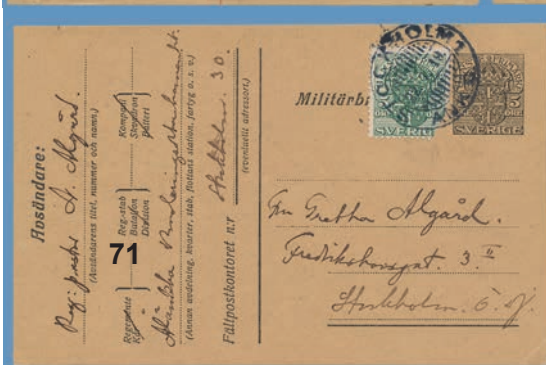 Avsändare:
A. Algård.
(Avsändarens titel, nummer och namn.)
Regemente
Reg.-stab
Bataljon
Division
Kompani
Skvadron
Batteri
(Annan avdelning, kvarter, stab, flottans station, fartyg o. s. v.)
Fältpostkontoret n:r 30.
Stockholm
(eventuellt adressort.)
71
Militärbr
STOCKHOLM 1
SVERIGE
5 SVERIGE
Fru Gretha Algård.
Fredrikshovsgat. 3.
Stockholm. Ö.